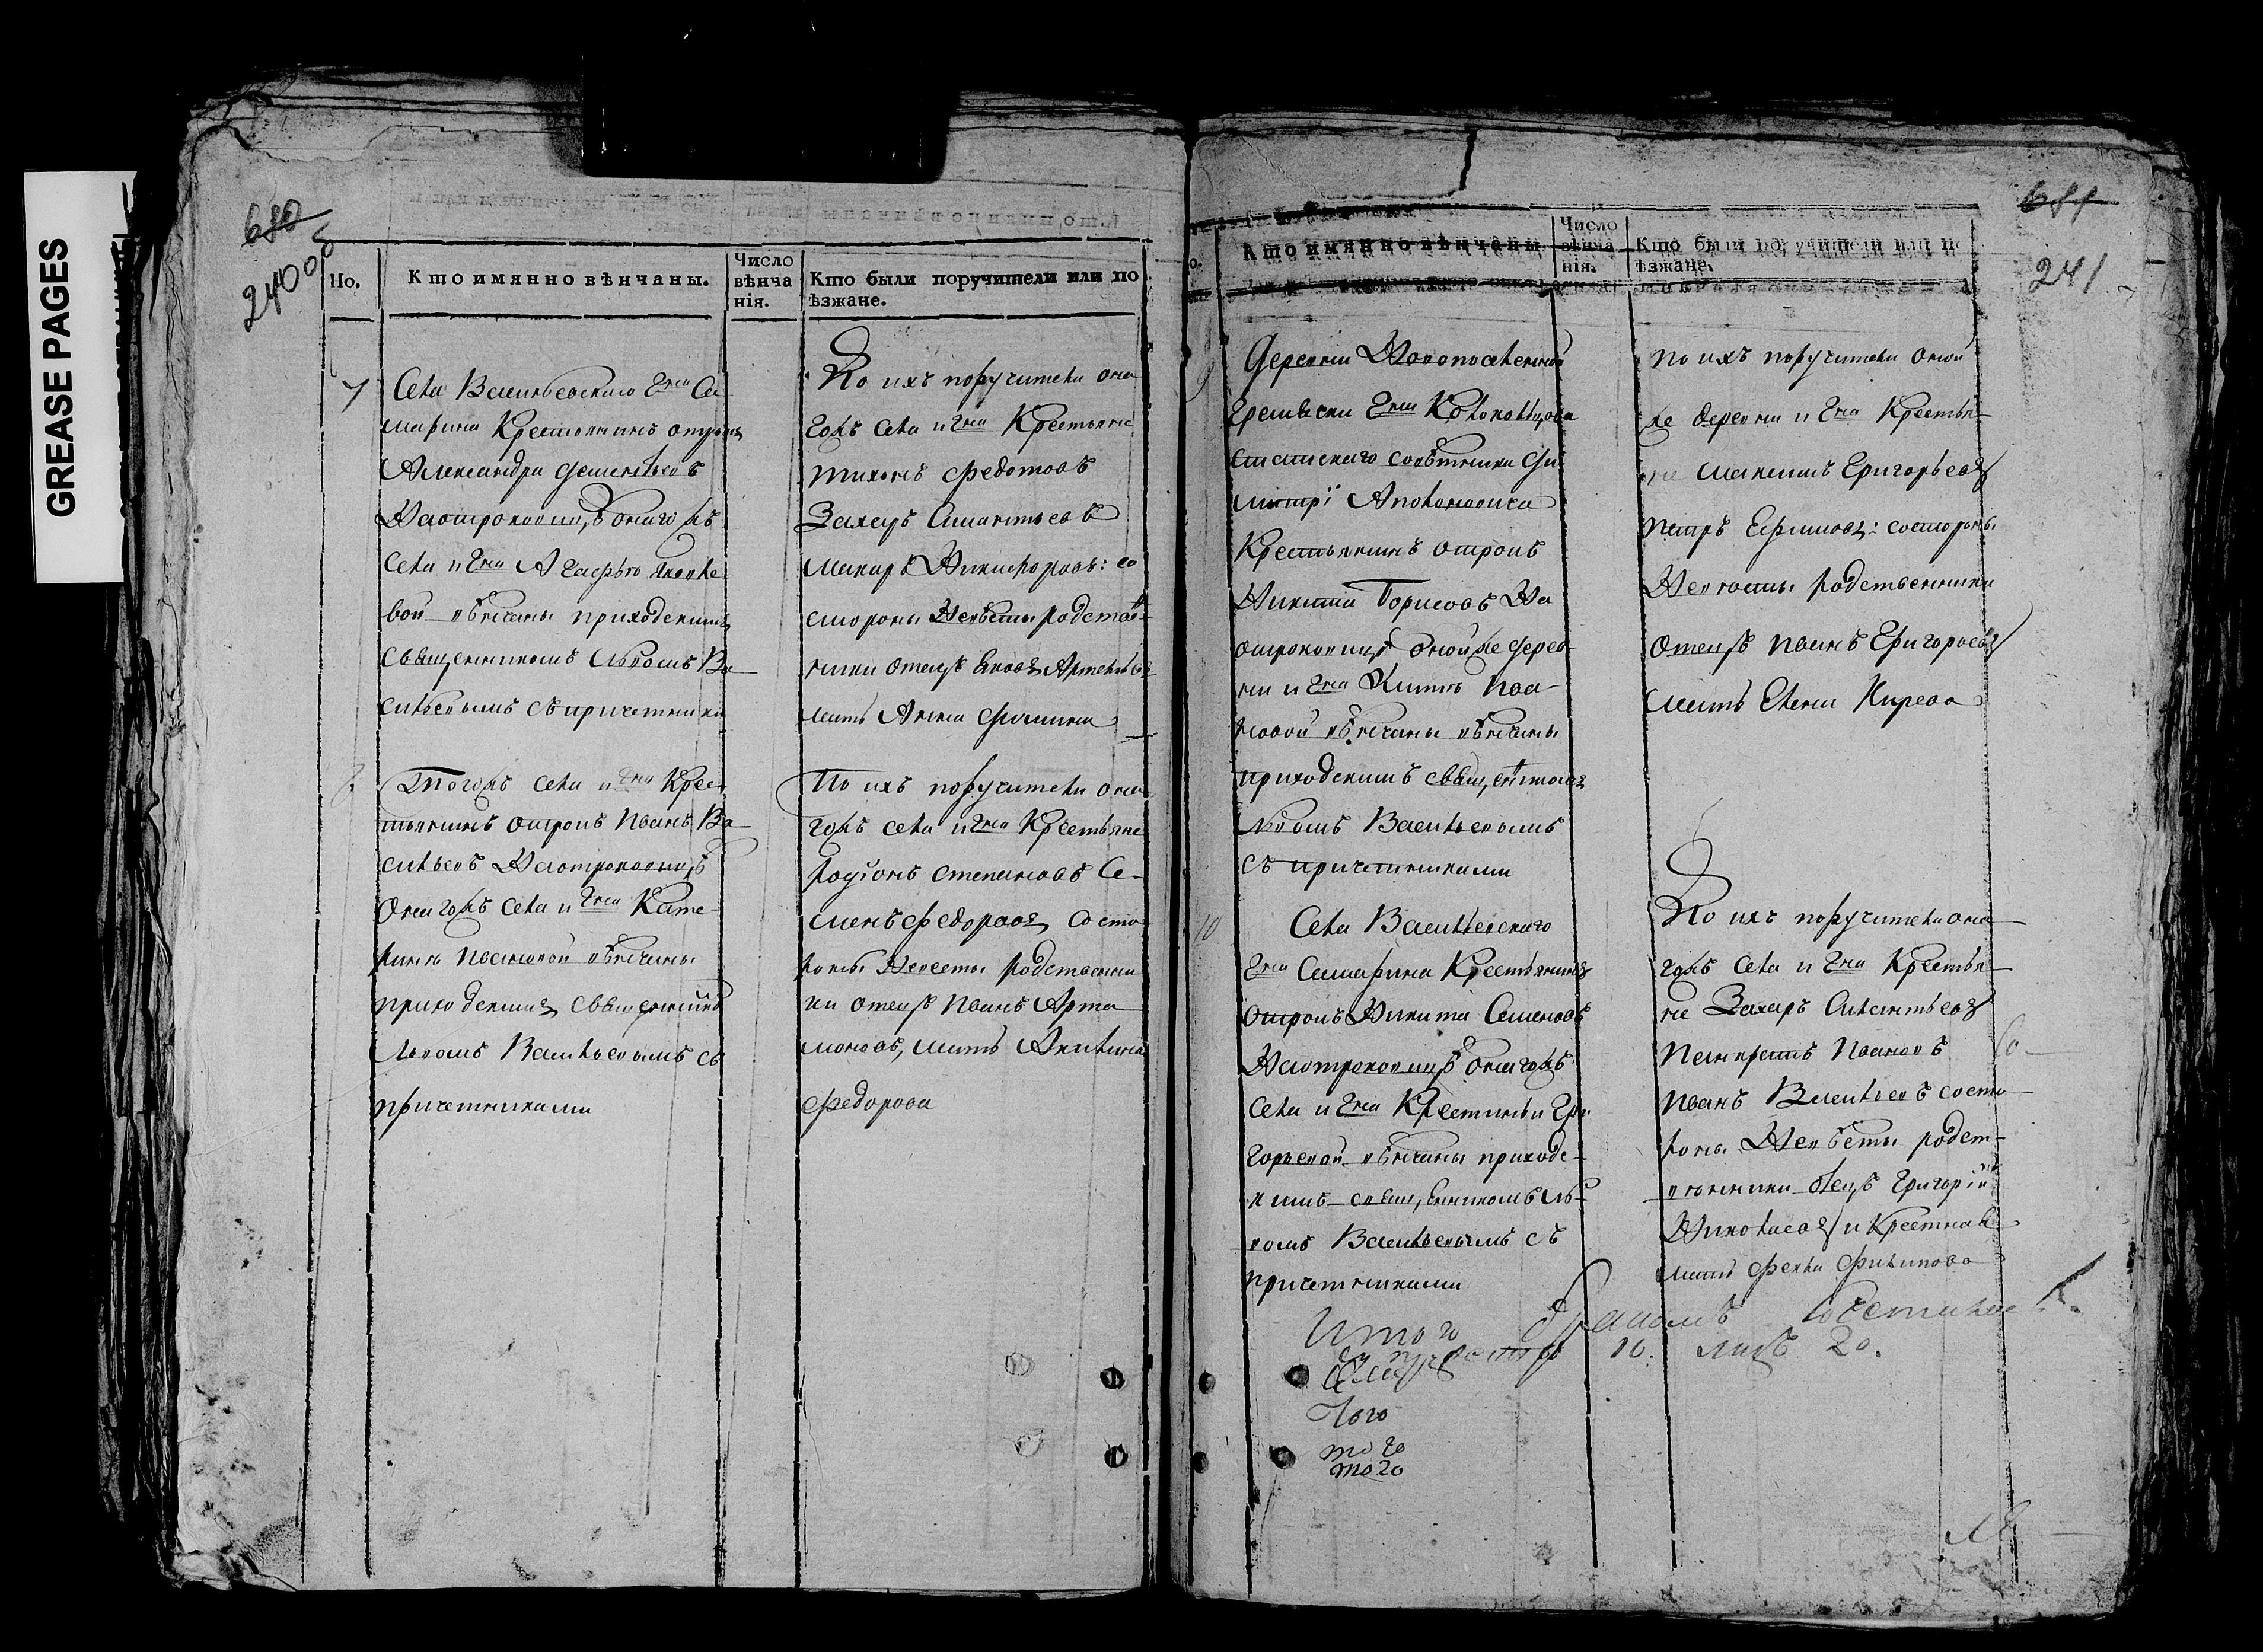 GREASE PAGES
680
240 об
Но.
Кто имянно вѣнчаны.
Число
вѣнча
нія.
Кто были поручители или по
ѣзжане.
7
Села Васильевскаго Гна Са
марина Крестьянинъ отрокъ
Александра Дементьевъ
На отроковицѣ онагожъ
села и Гна Агафьѣ Яковле
вой вѣнчаны приходскимъ
священникомъ Львомъ Ва
сильевымъ съ причетники
По ихъ поручители она
гожъ села и Гна Крестьяне
Тихонъ Федотовъ
Захаръ
Макаръ Никифоровъ: со
стороны Невѣсты родстве
ники отецъ Яковъ
мать Анна Фомина
8
Тогожъ села и Гна Крес
тьянинъ отрокъ Иванъ Ва
сильевъ На отроковицѣ
Онагожъ села и Гна Кате
ринѣ Ивановой вѣнчаны
приходскимъ священникомъ
Львомъ Васильевымъ съ
причетниками
По ихъ поручители она
гожъ села и Гна Крестьяне
Родіонъ Степановъ Се
менъ Федоровъ Со сто
роны Невесты родственни
ки отецъ Иванъ Арта
моновъ, мать Акилина
Федорова
681
241
о.
Кто имянно вѣнчаны
Число
вѣнча
нія.
Кто были поручители или по
ѣзжане.
9
Деревни Новопоселенной
Еремѣевки Гна Колокольцова
статскаго совѣтника Ди
митрі Аполоновича
Крестьянинъ отрокъ
Никита Борисовъ На
отроковицѣ оной же дерев
ни и Гна Ива
новой вѣнчаны вѣнчаны
приходскимъ священникомъ
Львомъ Васильевымъ
съ причетниками
По ихъ поручители оной
же деревни и Гна Крестья
не Максимъ Григорьевъ
Петръ Ефимовъ: состороны
Невѣсты родственники
Отецъ Иванъ Григорьевъ
мать Елена Кирева
10
Села Васильевскаго
Гна Самарина Крестьянинъ
Отрокъ Никита Семеновъ
На отроковицѣ онагожъ
села и Гна Крестиньи Гри
горьевой вѣнчаны приходс
кимъ священникомъ Ль
вомъ Васильевымъ съ
причетниками
По ихъ поручители она
гожъ села и Гна Крестья
не Захаръ
Панкратъ Ивановъ
Иванъ Васильевъ состо
роны Невѣсты родст
венники отецъ Григорій
Николаевъ и Крестная
мать Фекла Филипова
Итого бракомъ
10. лицъ 20.
того
того
того